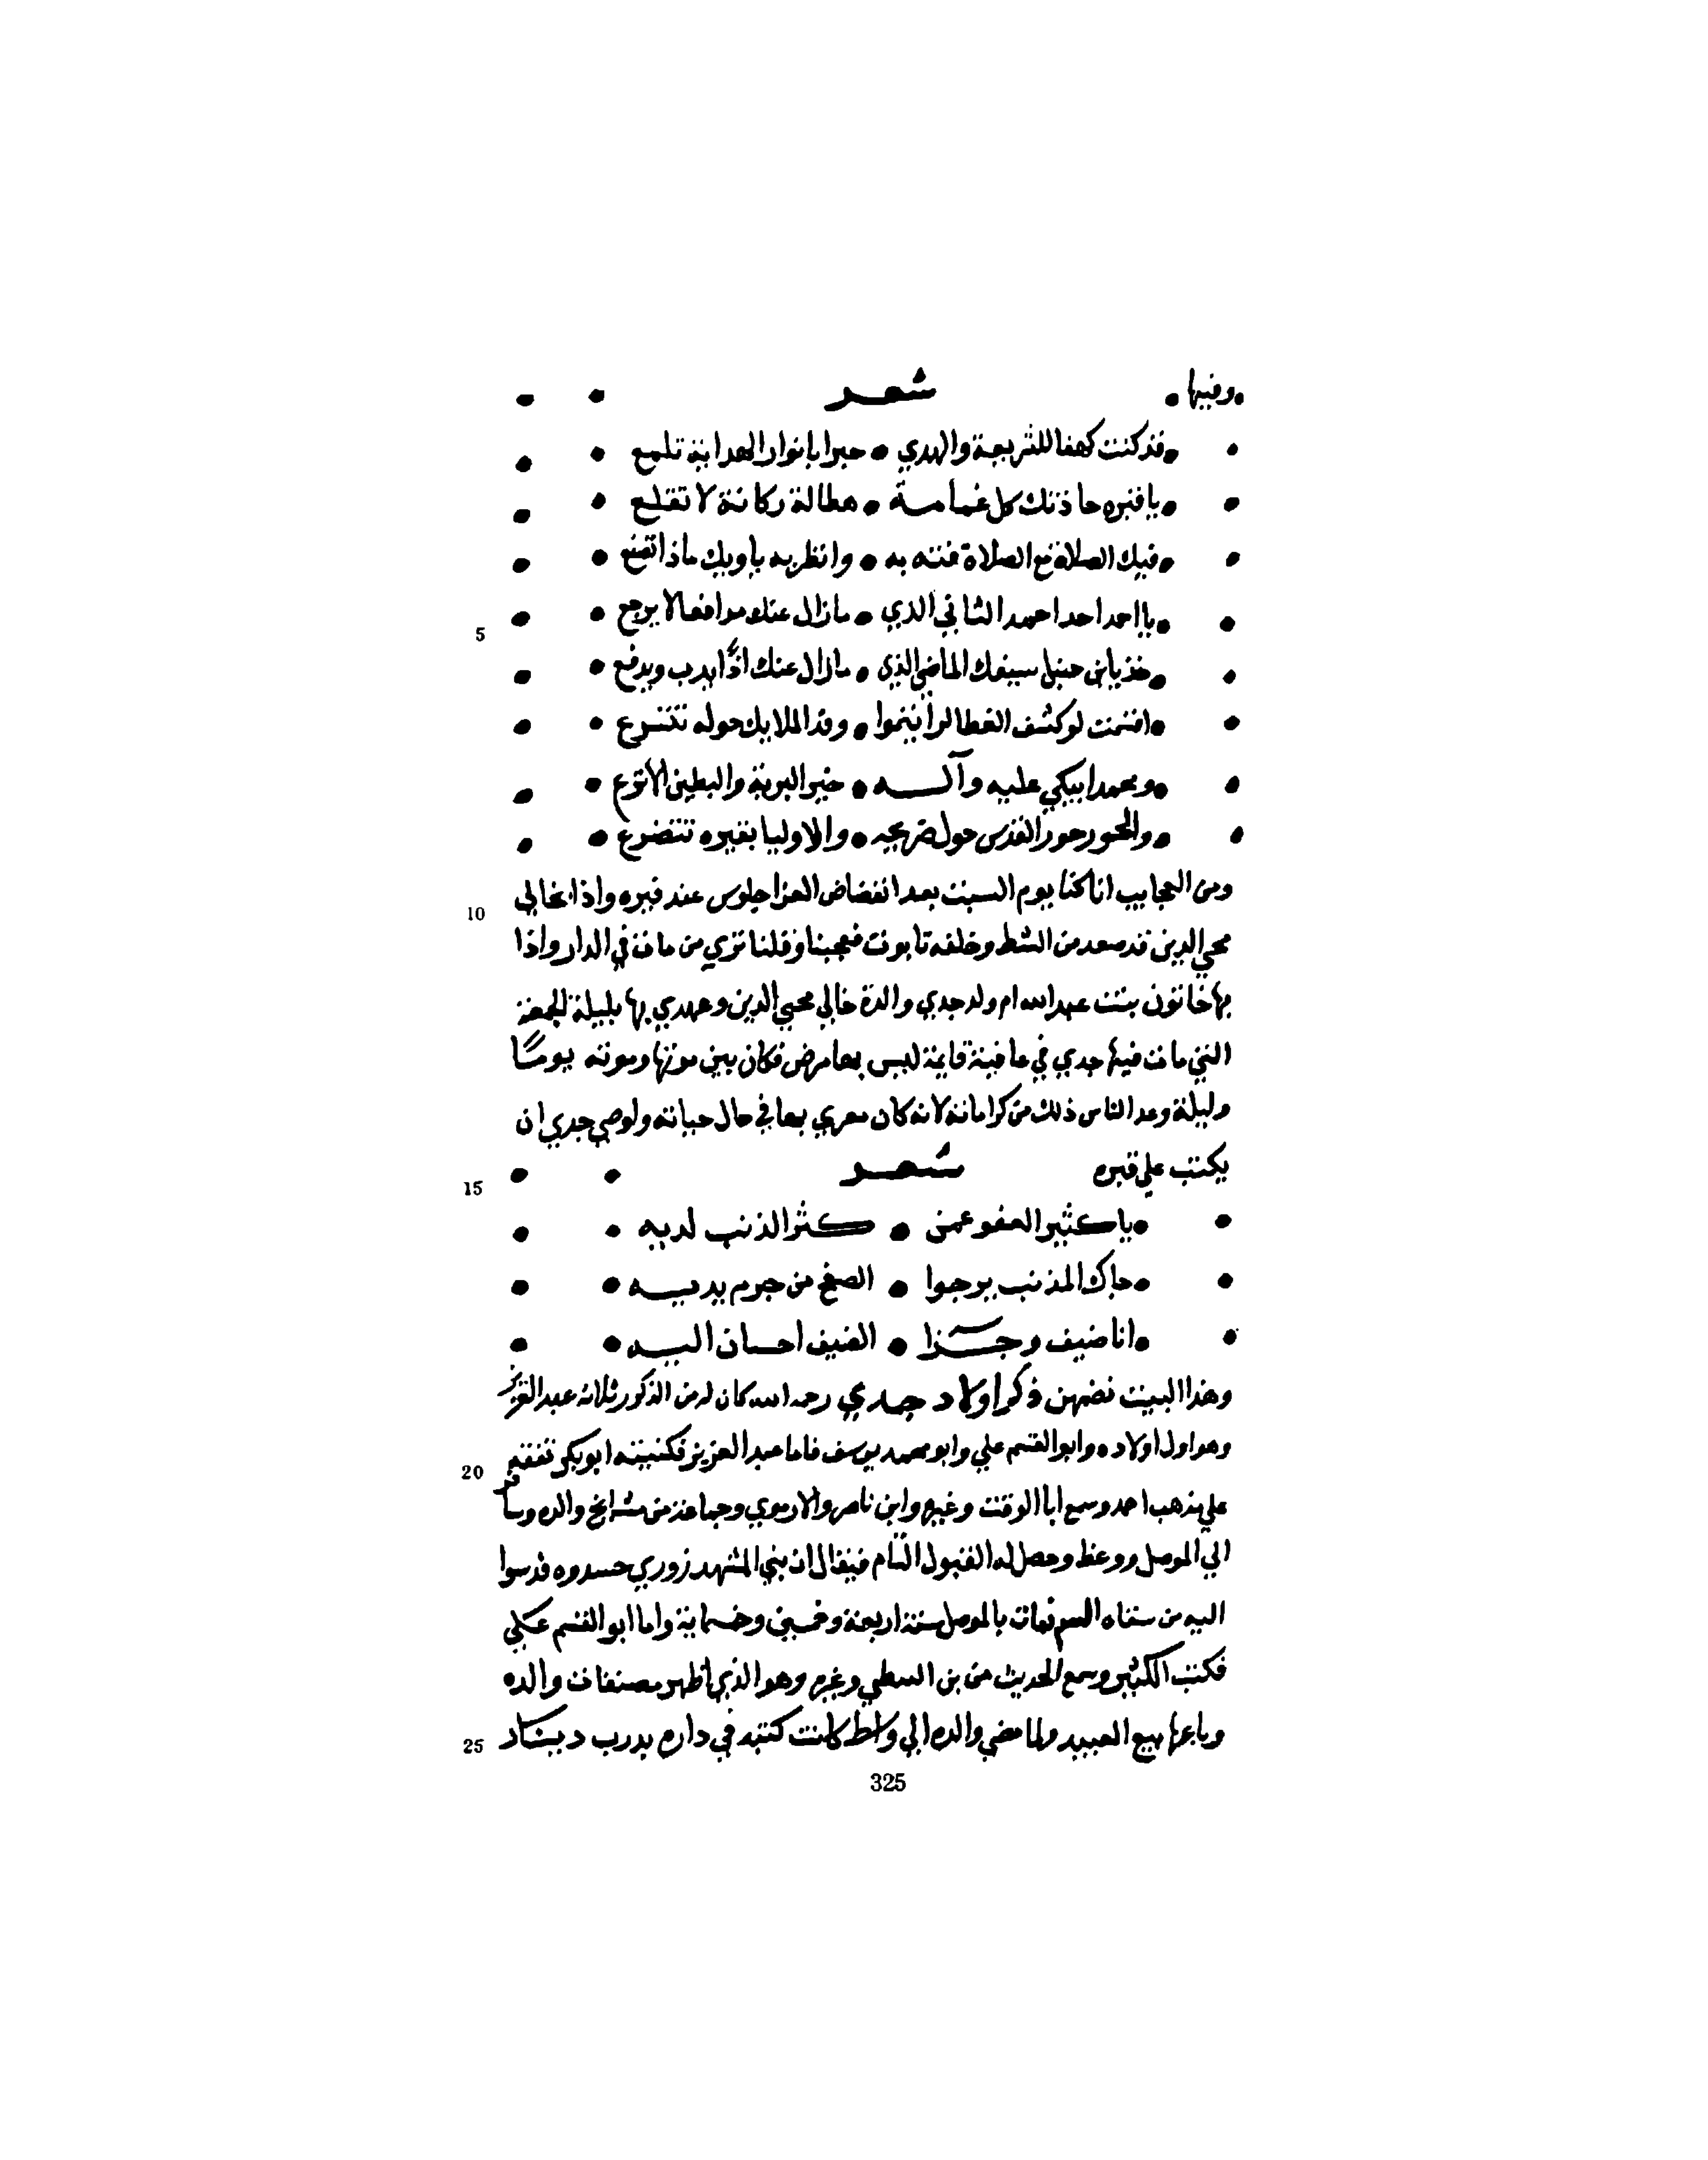 وفيها شعر
قد كنت كهفا للشريعة والهدي • حبرا بانوار الهداية تلمع
يا قبره جاذتك كل غمامة • هطالة ركانة لا تقلع
فيك الصلاة مع الصلاة فته به • وانظر به باويك ماذا تصنع
يا احمد احمد الثاني الذي • مازال عنك مدافعا لا يرجع
خذ يا بن حنبل سيفك الماضي الذي • مازال عنك اذا يدب ويدفع
اقسمت لو كشف الغطا لرأيتموا • وفد الملايك حوله تتسرع
ومحمدا يبكي عليه وآلـه • خير البرية والبطين الانزع
والحور حور القدس حول ضريحه • والاوليا بقبره تتضرع
ومن العجايب انا كنا يوم السبت بعد انفضاض العزا جلوس عند قبره واذا بخالي
10
محيي الدين قد صعد من الشط وخلفه تابوت فعجبنا وقلنا تري من مات في الدار واذا
بها خاتون بنت عبد الله ام ولد جدي والدة خالي محيي الدين وعهدي بها بليلة الجمعة
التي مات فيها جدي في عافية قايمة ليس بها مرض فكان بين موتها وموته يومًا
وليلة وعد الناس ذلك من كراماته لانه كان مغري بها في حال حياته واوصي جدي ان
يكتب علي قبره شعر
15
يا كثير العفو عمن • كثر الذنب لديه
جاك المذنب يرجوا • الصفح من جرم يديـه
انا ضيف وجـزا • الضيف احسان اليـه
وهذا البيت تضمين ذكر اولاد جدي رحمه الله كان له من الذكور ثلاثة عبد العزيز
وهو اول اولاده وابو القسم علي وابو محمد يوسف فاما عبد العزيز فكنيته ابو بكر تفقه
20
علي مذهب احمد وسمع ابا الوقت وغيره وابن ناصر والارموي وجماعة من مشايخ والده وسافر
الي الموصل ووعظ وحصل له القبول التام فيقال ان بني الشهرزوري حسدوه فدسوا
اليه من سقاه السم فمات بالموصل سنة اربعة وخمسين وخمسماية واما ابو القسم علي
فكتب الكثير وسمع الحديث من بن البطي وغيره وهو الذي اظهر مصنفات والده
وباعها بيع العبيد ولما مضي والده الي واسط كانت كتبه في داره بدرب دينار
25
325